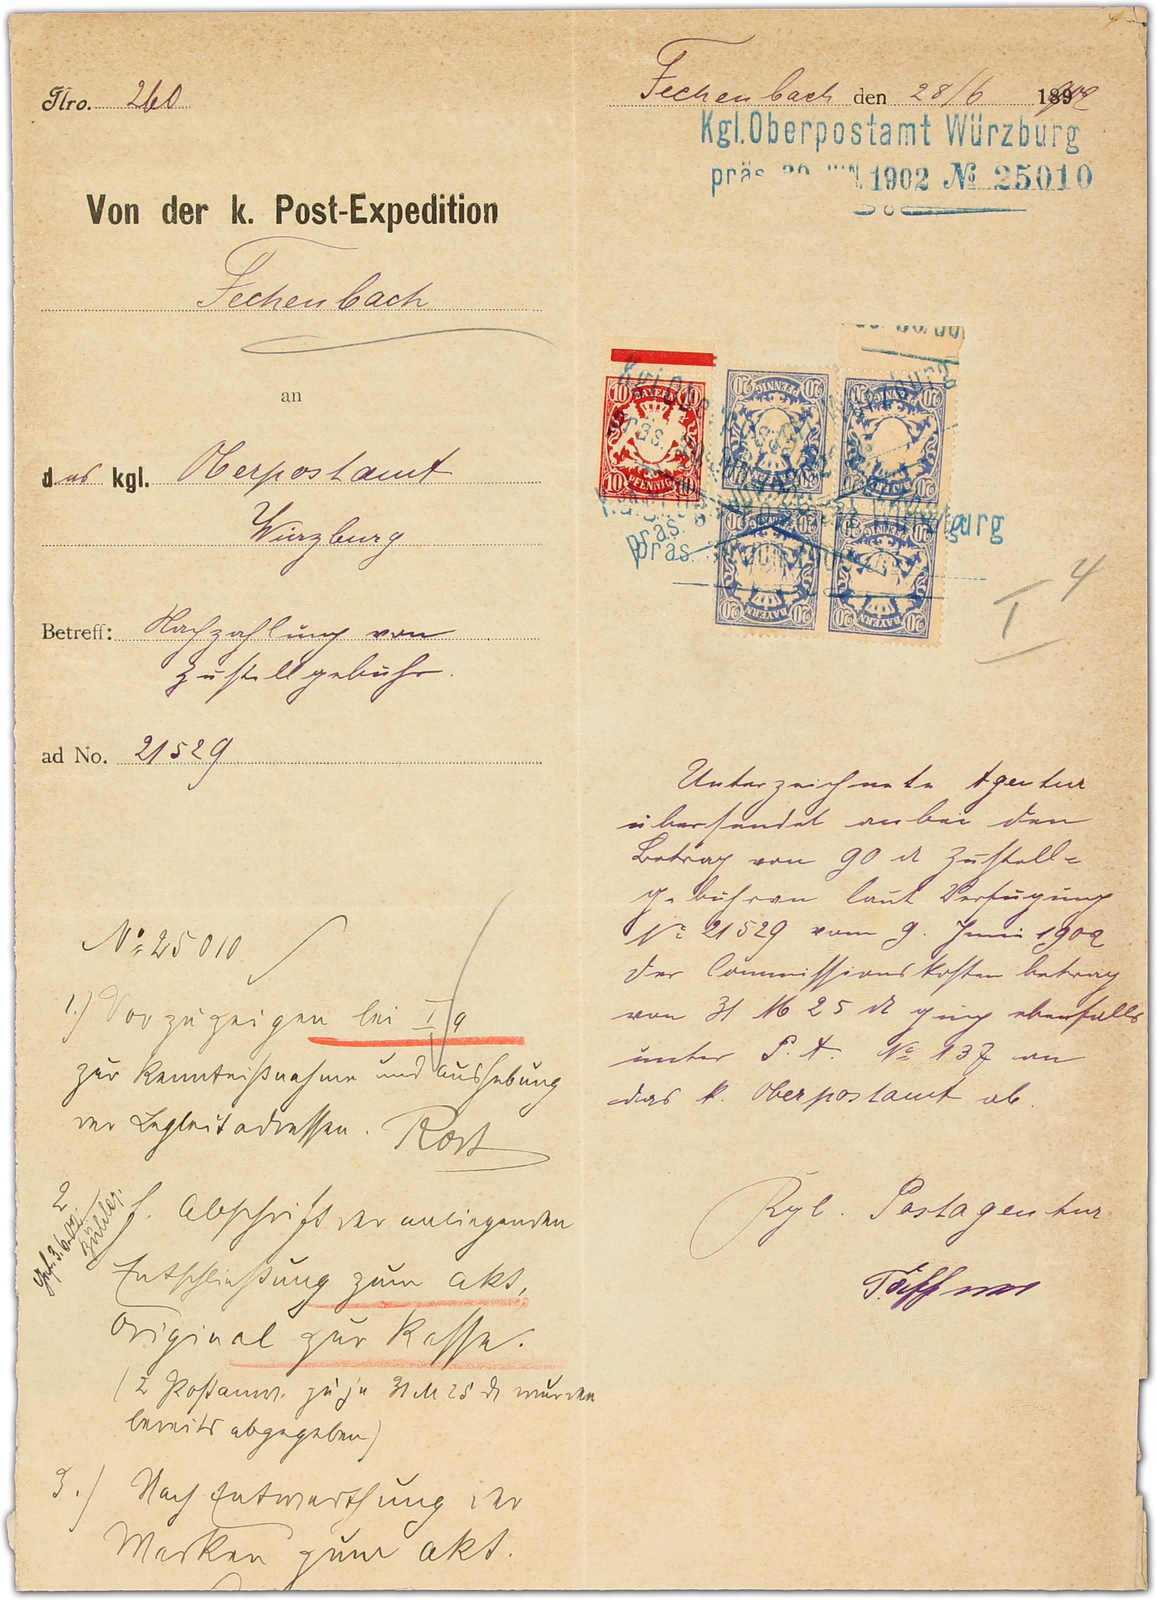 Nro. 260
Fechenbach den 28/6 1902
Kgl. Oberpostamt Würzburg
präs. 30 JUN. 1902 № 25010
Von der k. Post-Expedition
Fechenbach
an
das kgl. Oberpostamt
Würzburg
Betreff: Nachzahlung von
Zustellgebühr.
ad No. 21529
10 BAYERN 10
10 PFENNIG 10
20 PFENNIG 20
20 BAYERN 20
I 4
Unterzeichnete Agentur
übersendet anbei den
Betrag von 90 ₰ Zustell=
gebühren laut Verfügung
№ 21529 vom 9. Juni 1902
der Commissionskosten betrag
von 31 M 25 ₰ ging ebenfalls
unter P. A. № 137 an
das k. Oberpostamt ab.
Kgl. Postagentur
№ 25010
1.) Vorzuzeigen bei I/a
zur Kenntnißnahme und Aushebung
der Begleitadressen.
2. Abschrift der anliegenden
Entschließung zum Akt,
Original zur Kasse.
(2 Postanw. zu je 31 M 25 ₰ wurden
bereits abgegeben)
3.) Nach Entwerthung der
Marken zum Akt.